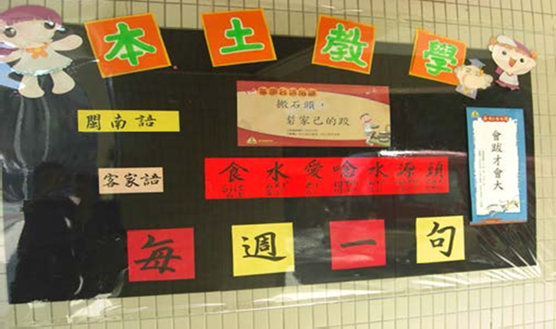 本土教學
閩南語
搬石頭，
砉家己的跤
客家語
食水愛唸水源頭
會跋才會大
每週一句